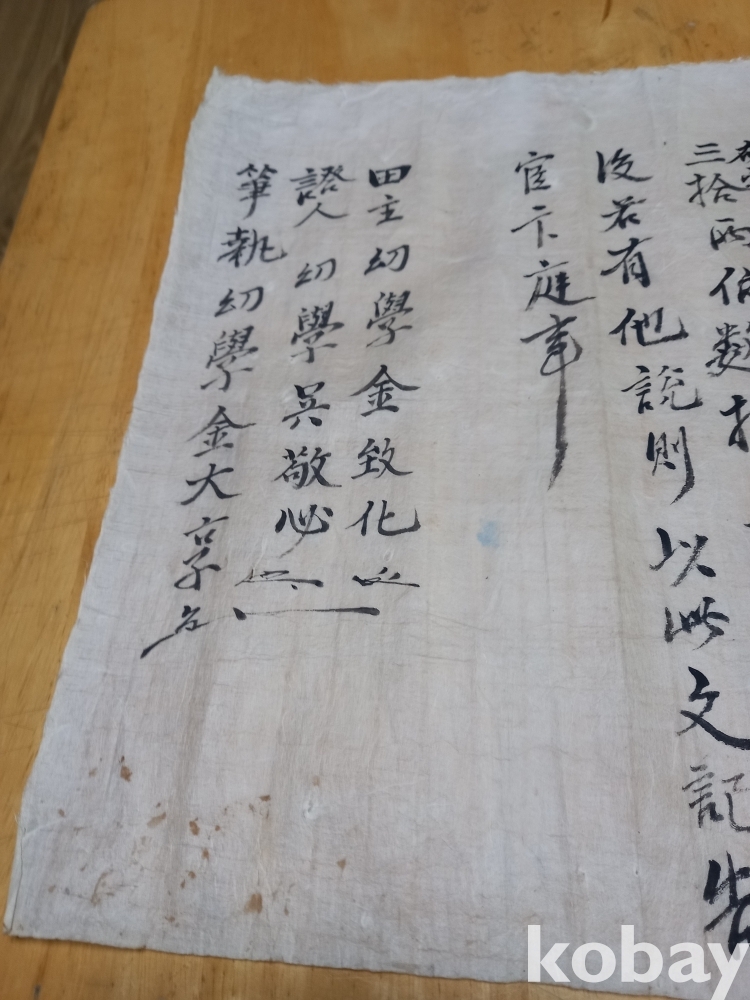 三拾兩依數捧
後若有他說則以此文記告
官卞庭事
田主幼學金致化
證人幼學吳敬必
筆執幼學金大亨
kobay